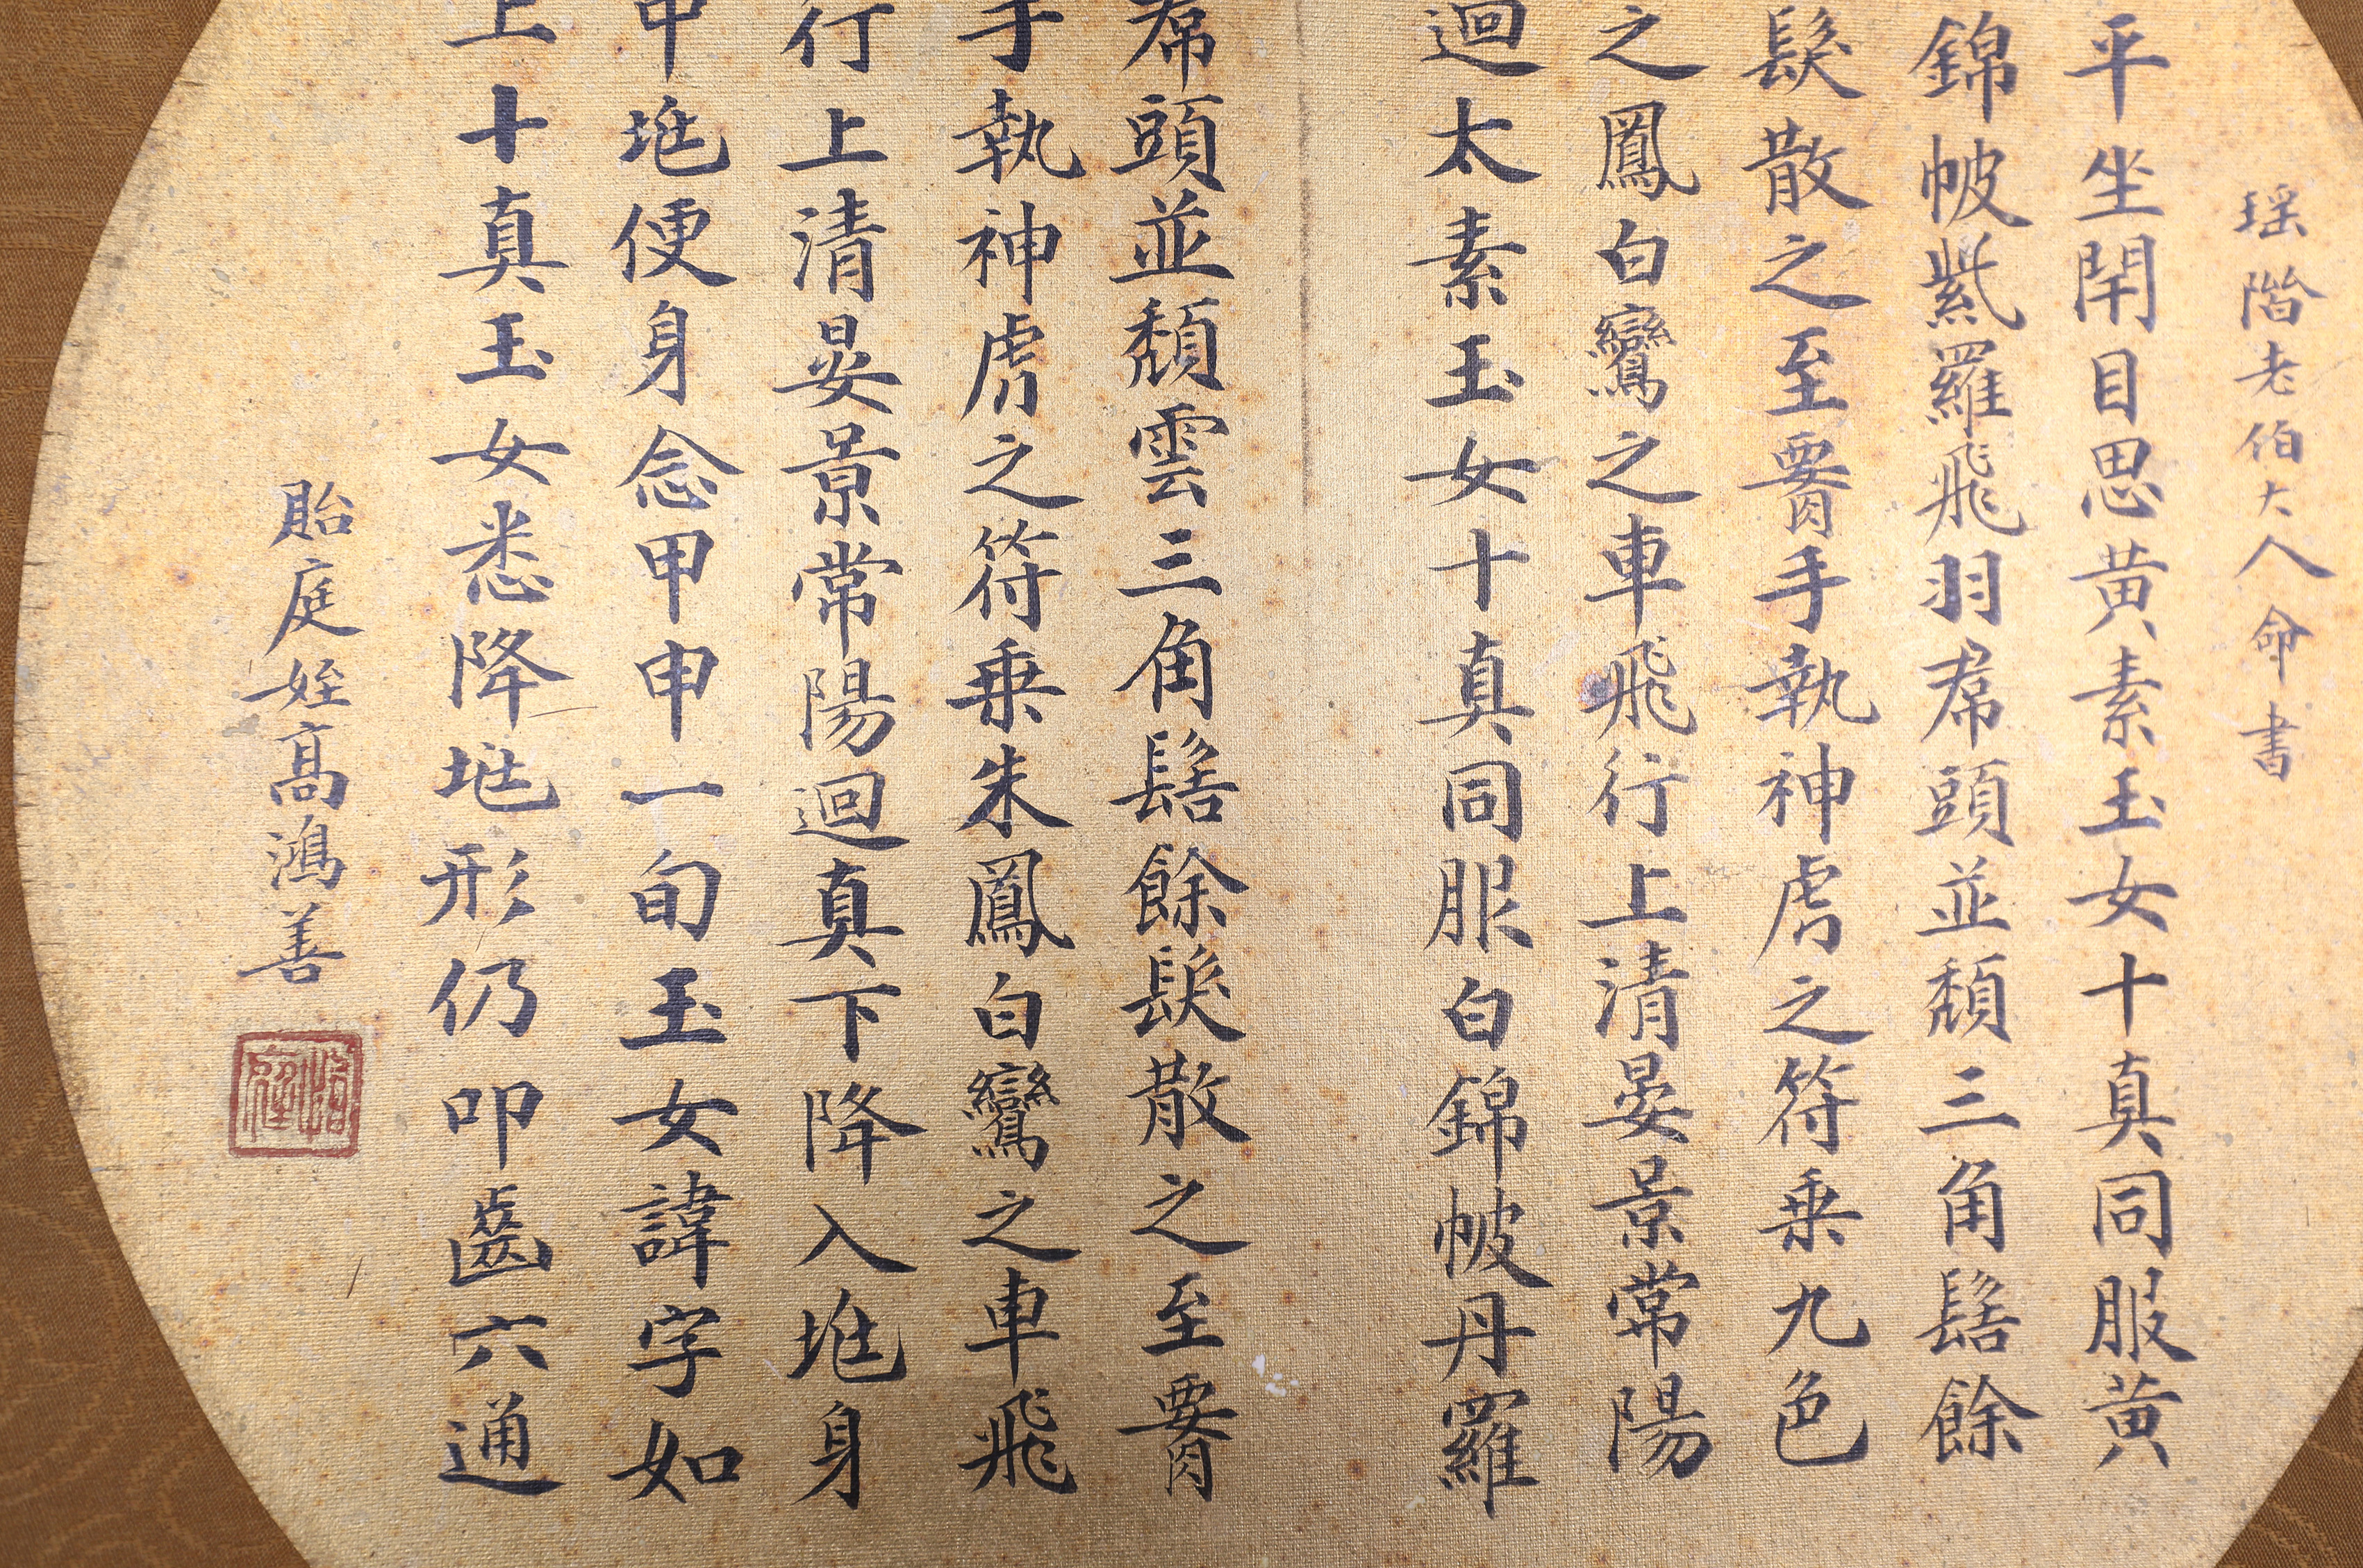 瑶階老伯大人命書
平坐閉目思黃素玉女十真同服黃
錦帔紫羅飛羽帬頭並頹三角髻餘
髮散之至䏚手執神虎之符乗九色
之鳳白鸞之車飛行上清晏景常陽
迴太素玉女十真同服白錦帔丹羅
帬頭並頹雲三角髻餘髮散之至䏚
手執神虎之符乗朱鳳白鸞之車飛
行上清晏景常陽迴真下降入𡉏身
中𡉏便身念甲申一旬玉女諱字如
上十真玉女悉降𡉏形仍叩齒六通
貽庭姪高鴻善